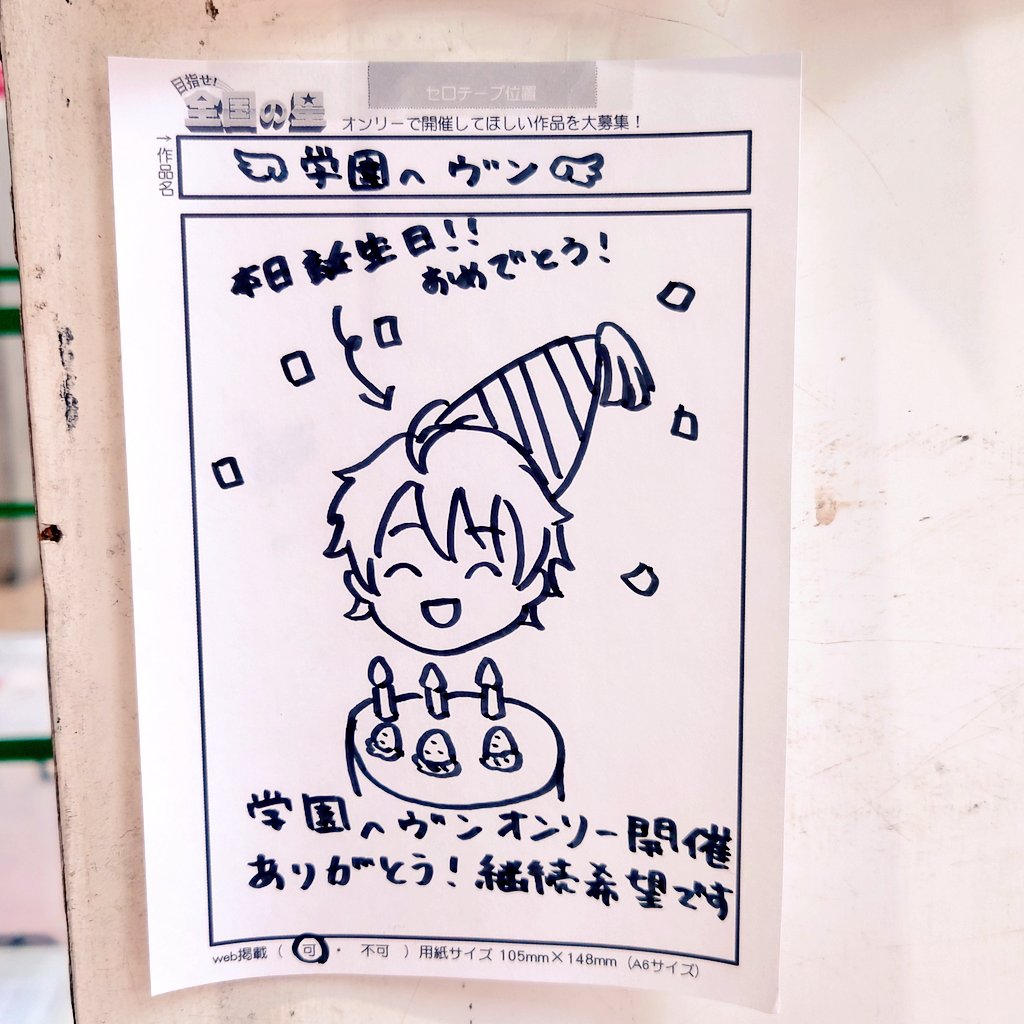 目指せ!
全国の星
セロテープ位置
オンリーで開催してほしい作品を大募集!
→作品名
学園ヘヴン
本日誕生日!!
おめでとう!
学園ヘヴンオンリー開催
ありがとう!継続希望です
web掲載 ( 可 ・ 不可 ) 用紙サイズ 105mm×148mm (A6サイズ)